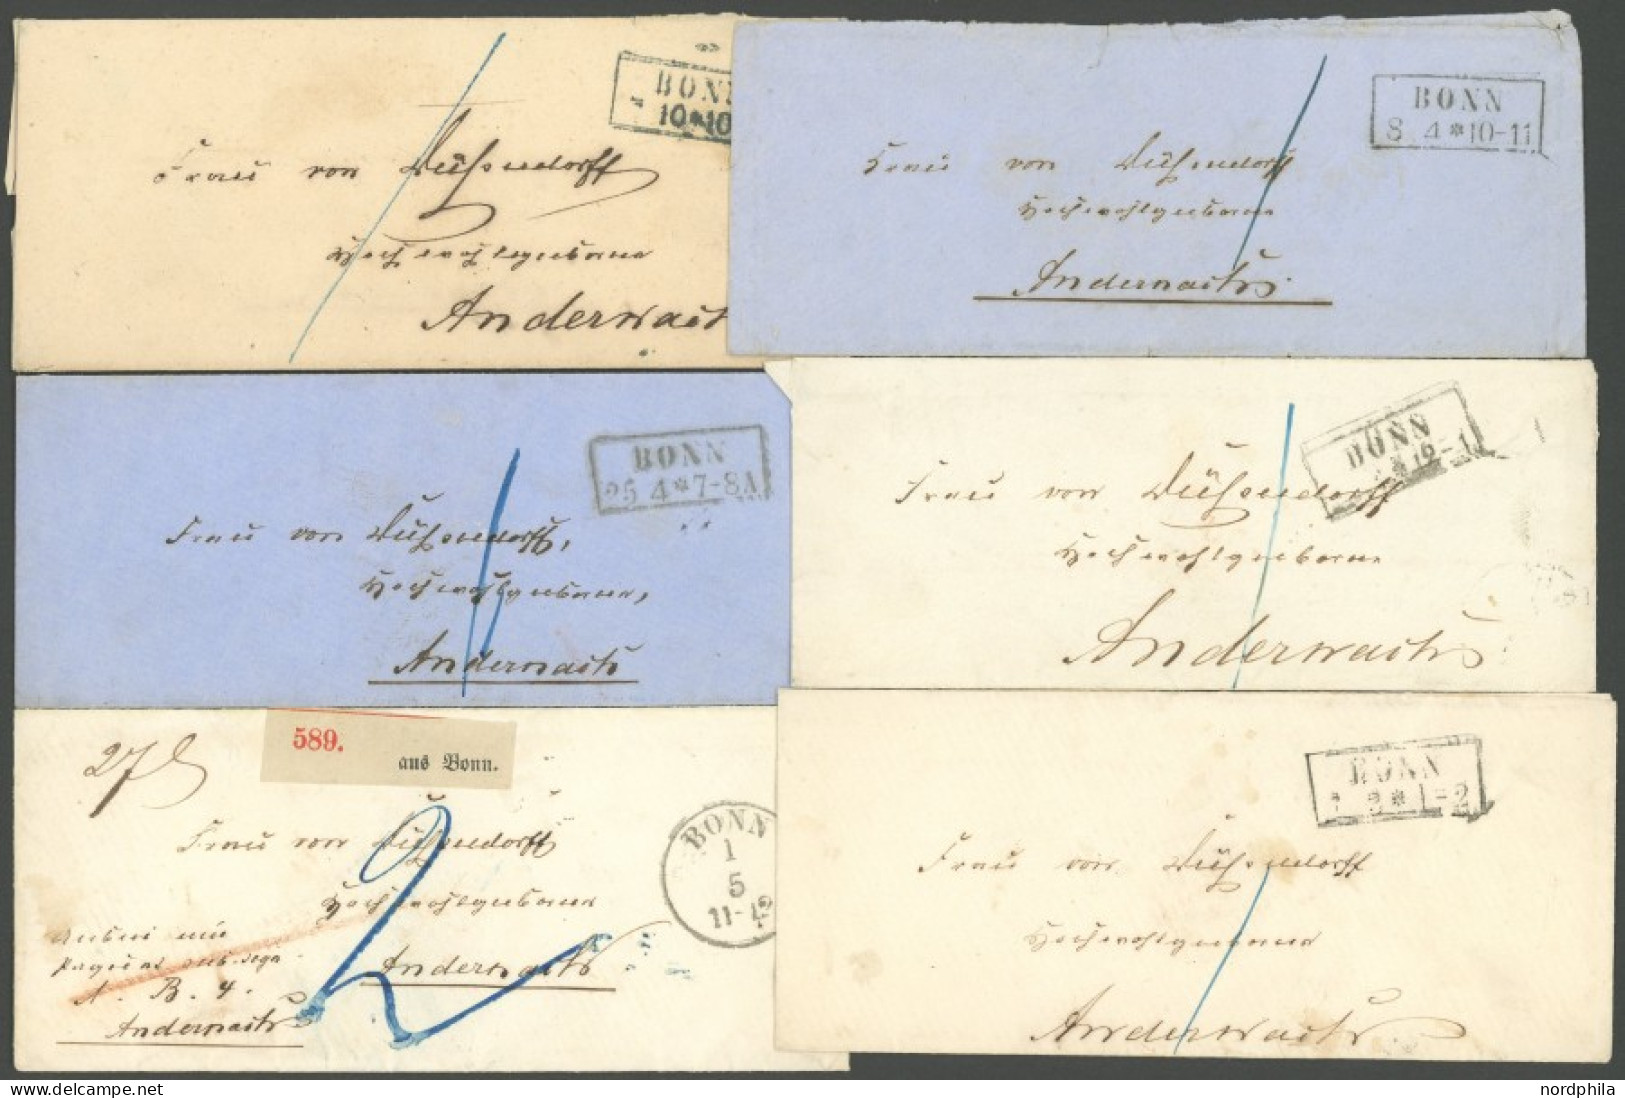 BONN
10*10
Frau von Düssendorff
Hochwohlgeboren
Andernach
BONN
8 4*10-11
Frau von Düssendorff
Hochwohlgeboren
Andernach
BONN
25 4*7-8A
Frau von Düssendorff,
Hochwohlgeboren,
Andernach
BONN
*12-1
Frau von Düssendorff
Hochwohlgeboren
Andernach
589.
aus Bonn.
2
BONN
1
5
11-12
Frau von Düssendorff
Hochwohlgeboren
Andernach
A. B. 4.
Andernach
BONN
3*1-2
Frau von Düssendorff
Hochwohlgeboren
Andernach
nordphila.com